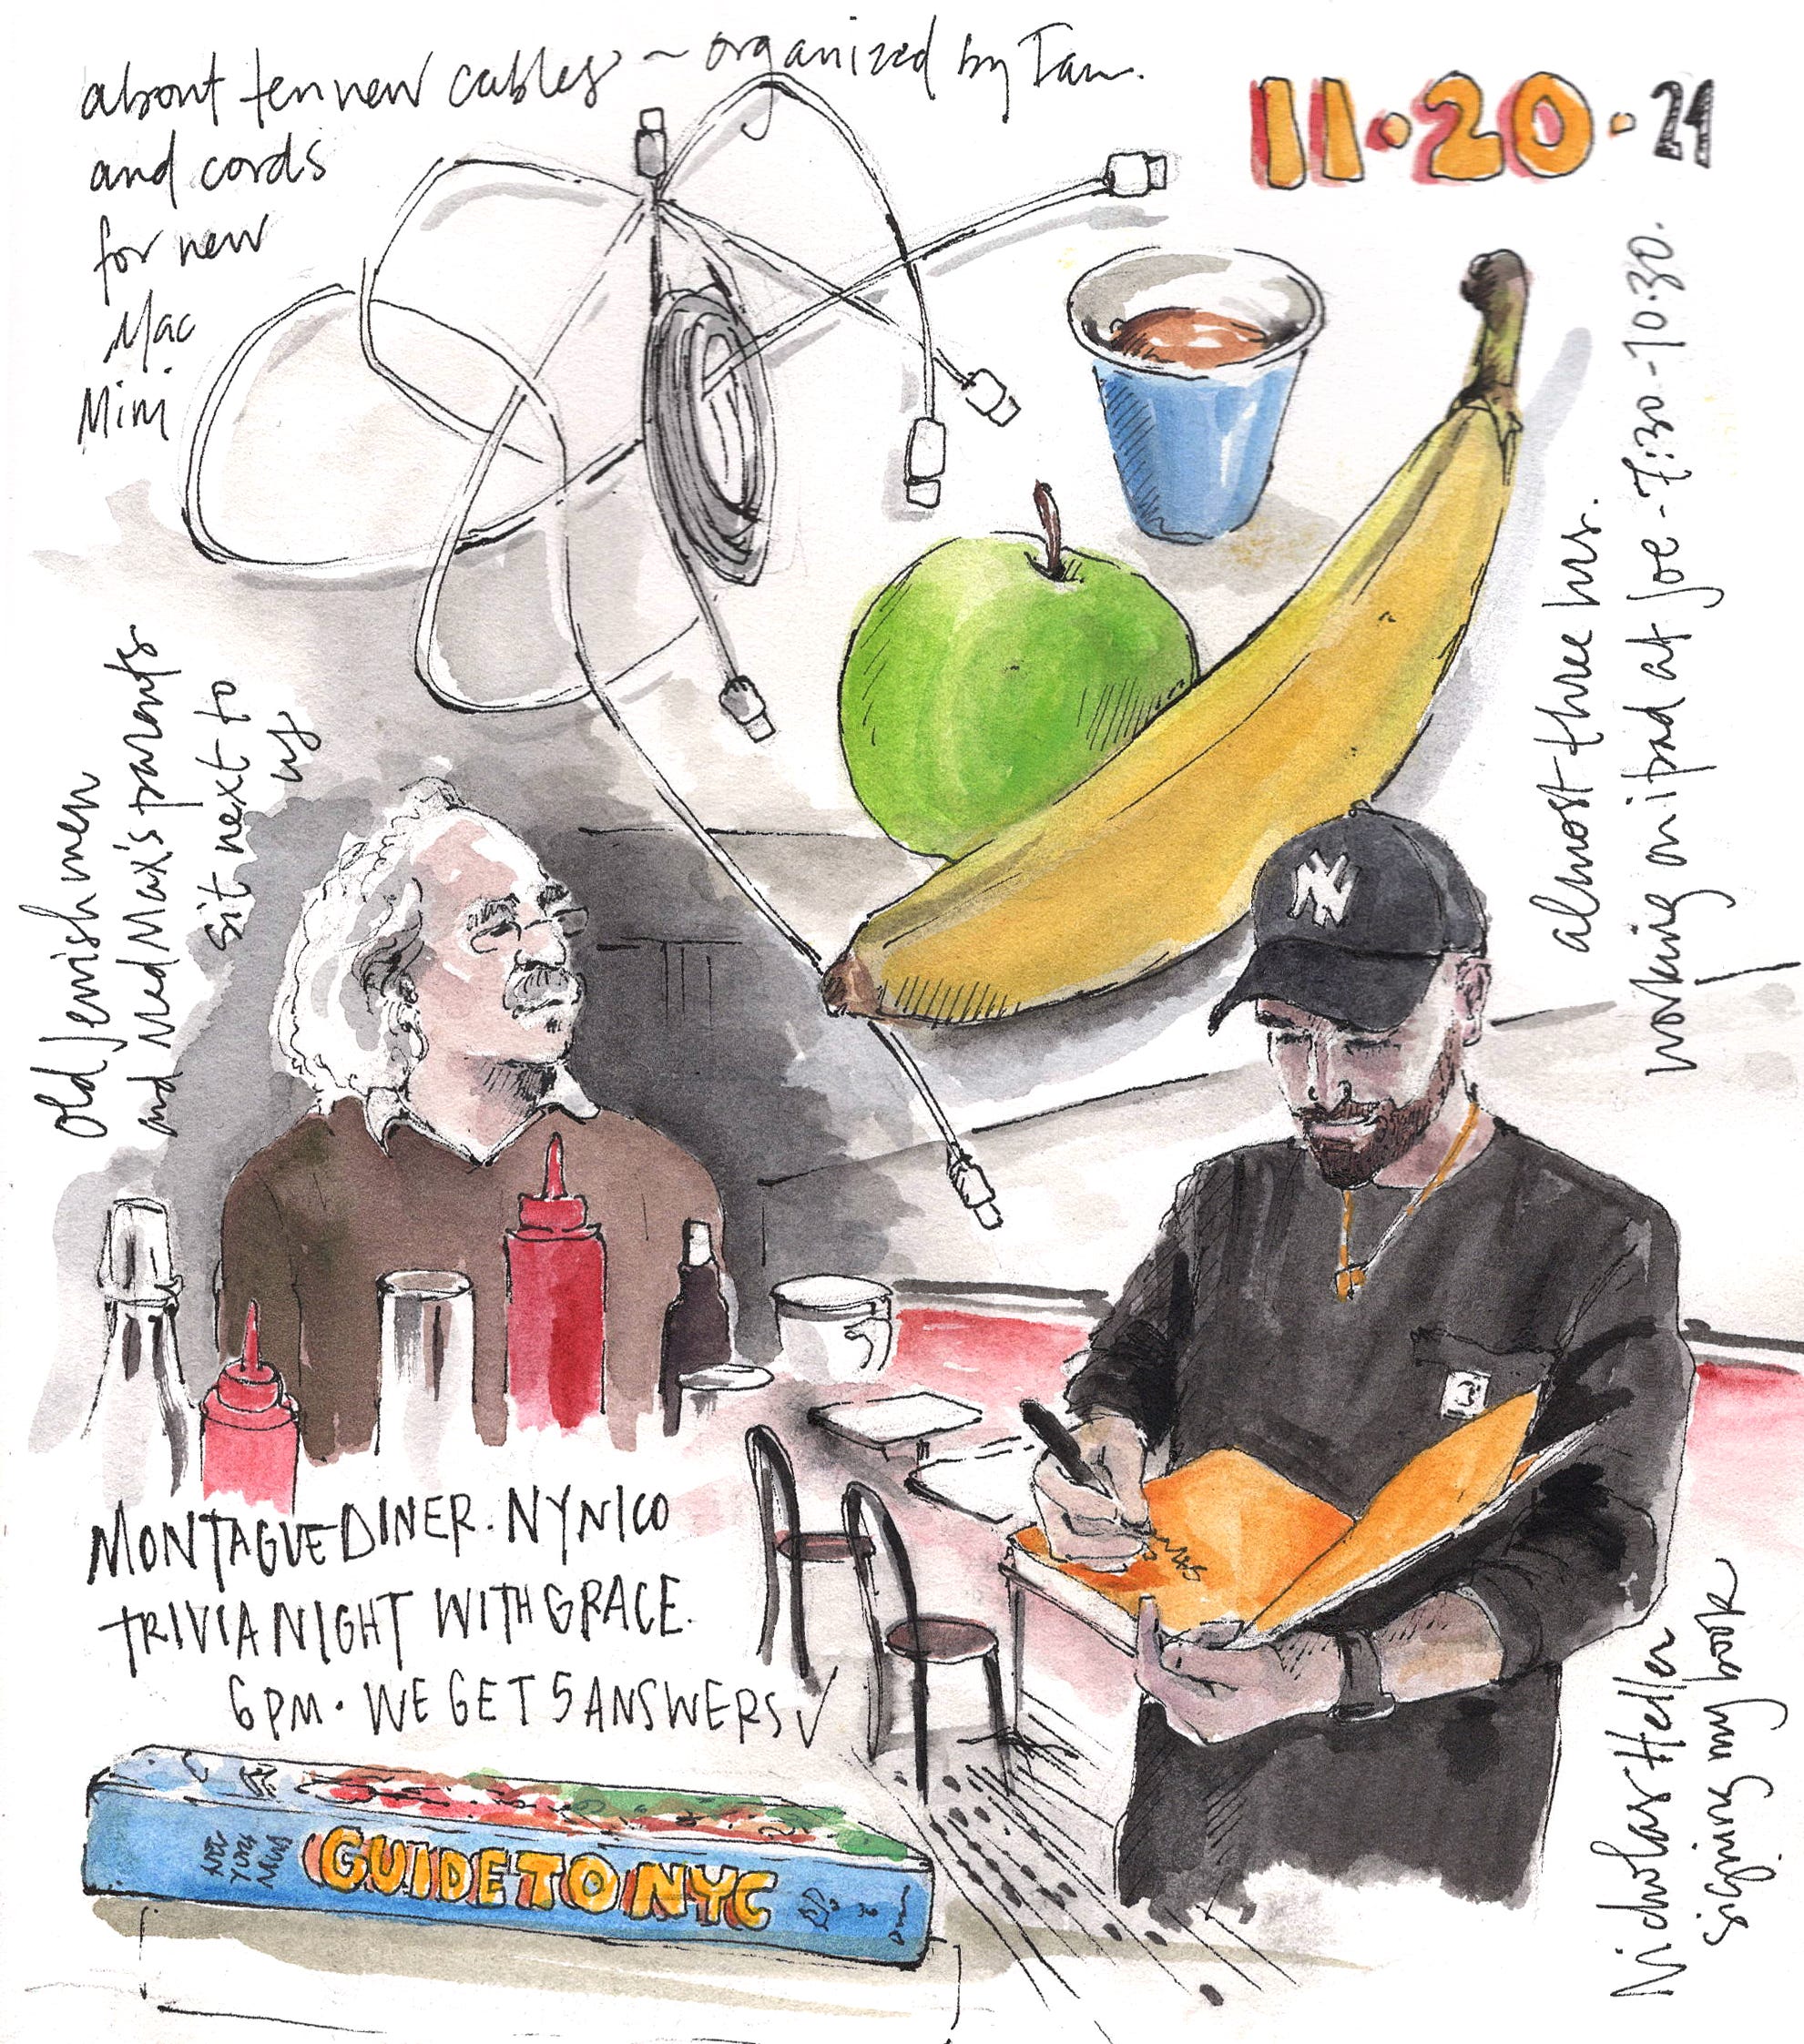 about ten new cables ~ organized by Ian.
and cords
for new
Mac
Mini
11·20·24
almost three hrs.
working on ipad at Joe - 7:30 - 10:30.
old Jewish men
and Med Max's parents
sit next to
us
NY
MONTAGUE DINER. NYNICO
TRIVIA NIGHT WITH GRACE.
6PM · WE GET 5 ANSWERS ✓
Nicholas Heller
signing my book
GUIDE TO NYC